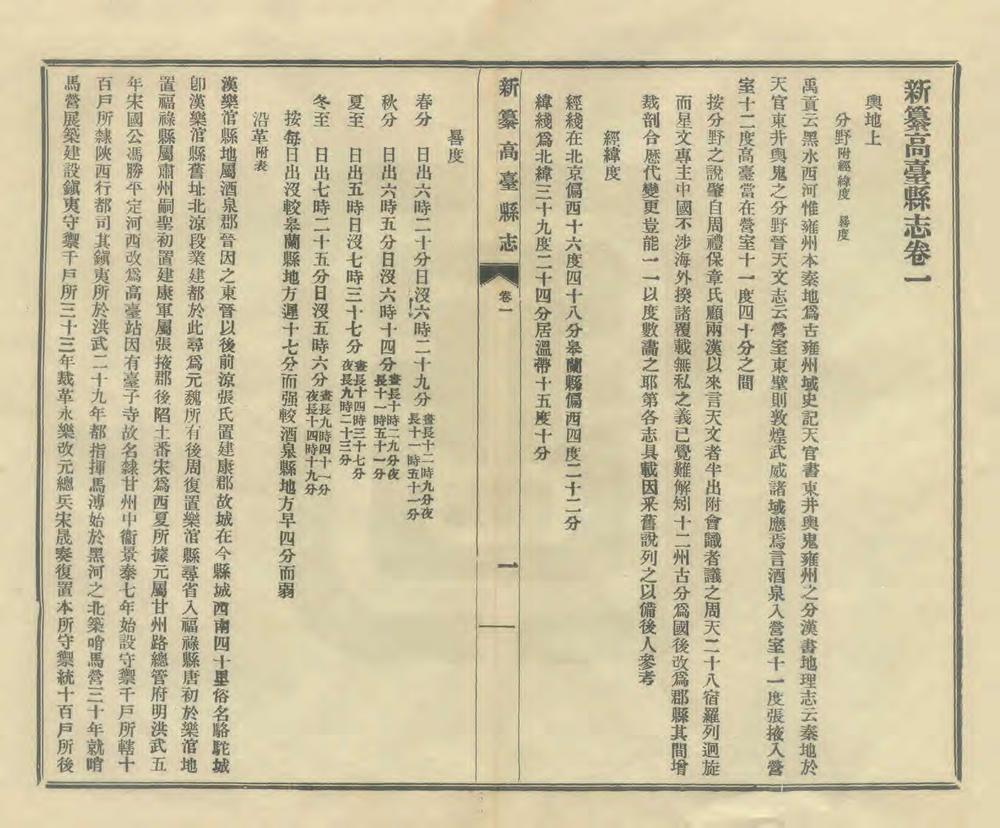 新纂高臺縣志卷一
輿地上
分野附經緯度 晷度
禹貢云黑水西河惟雍州本秦地爲古雍州域史記天官書東井輿鬼雍州之分漢書地理志云秦地於
天官東井輿鬼之分野晉天文志云營室東壁則敦煌武威諸域應焉言酒泉入營室十一度張掖入營
室十二度高臺當在營室十一度四十分之間
按分野之說肇自周禮保章氏顧兩漢以來言天文者半出附會識者議之周天二十八宿羅列迴旋
而星文專主中國不涉海外揆諸覆載無私之義已覺難解矧十二州古分爲國後改爲郡縣其間增
裁剖合歷代變更豈能一一以度數畫之耶第各志具載因采舊說列之以備後人參考
經緯度
經綫在北京偏西十六度四十八分皋蘭縣偏西四度二十二分
緯綫爲北緯三十九度二十四分居溫帶十五度十分
新纂高臺縣志 卷一 一
晷度
春分 日出六時二十分日沒六時二十九分晝長十二時九分夜長十一時五十一分
秋分 日出六時五分日沒六時十四分晝長十時二九分夜長十一時五十一分
夏至 日出五時日沒七時三十七分晝長十四時三十七分夜長九時二十三分
冬至 日出七時二十五分日沒五時六分晝長九時四十一分夜長十四時十九分
按每日出沒較皋蘭縣地方遲十七分而强較酒泉縣地方早四分而弱
沿革附表
漢樂涫縣地屬酒泉郡晉因之東晉以後前涼張氏置建康郡故城在今縣城西南四十里俗名駱駝城
卽漢樂涫縣舊址北涼段業建都於此尋爲元魏所有後周復置樂涫縣尋省入福祿縣唐初於樂涫地
置福祿縣屬肅州嗣聖初置建康軍屬張掖郡後陷土番宋爲西夏所據元屬甘州路總管府明洪武五
年宋國公馮勝平定河西改爲高臺站因有臺子寺故名隸甘州中衞景泰七年始設守禦千戶所轄十
百戶所隸陝西行都司其鎭夷所於洪武二十九年都指揮馬溥始於黑河之北築哨馬營三十年就哨
馬營展築建設鎭夷守禦千戶所三十三年裁革永樂改元總兵宋晟奏復置本所守禦統十百戶所後